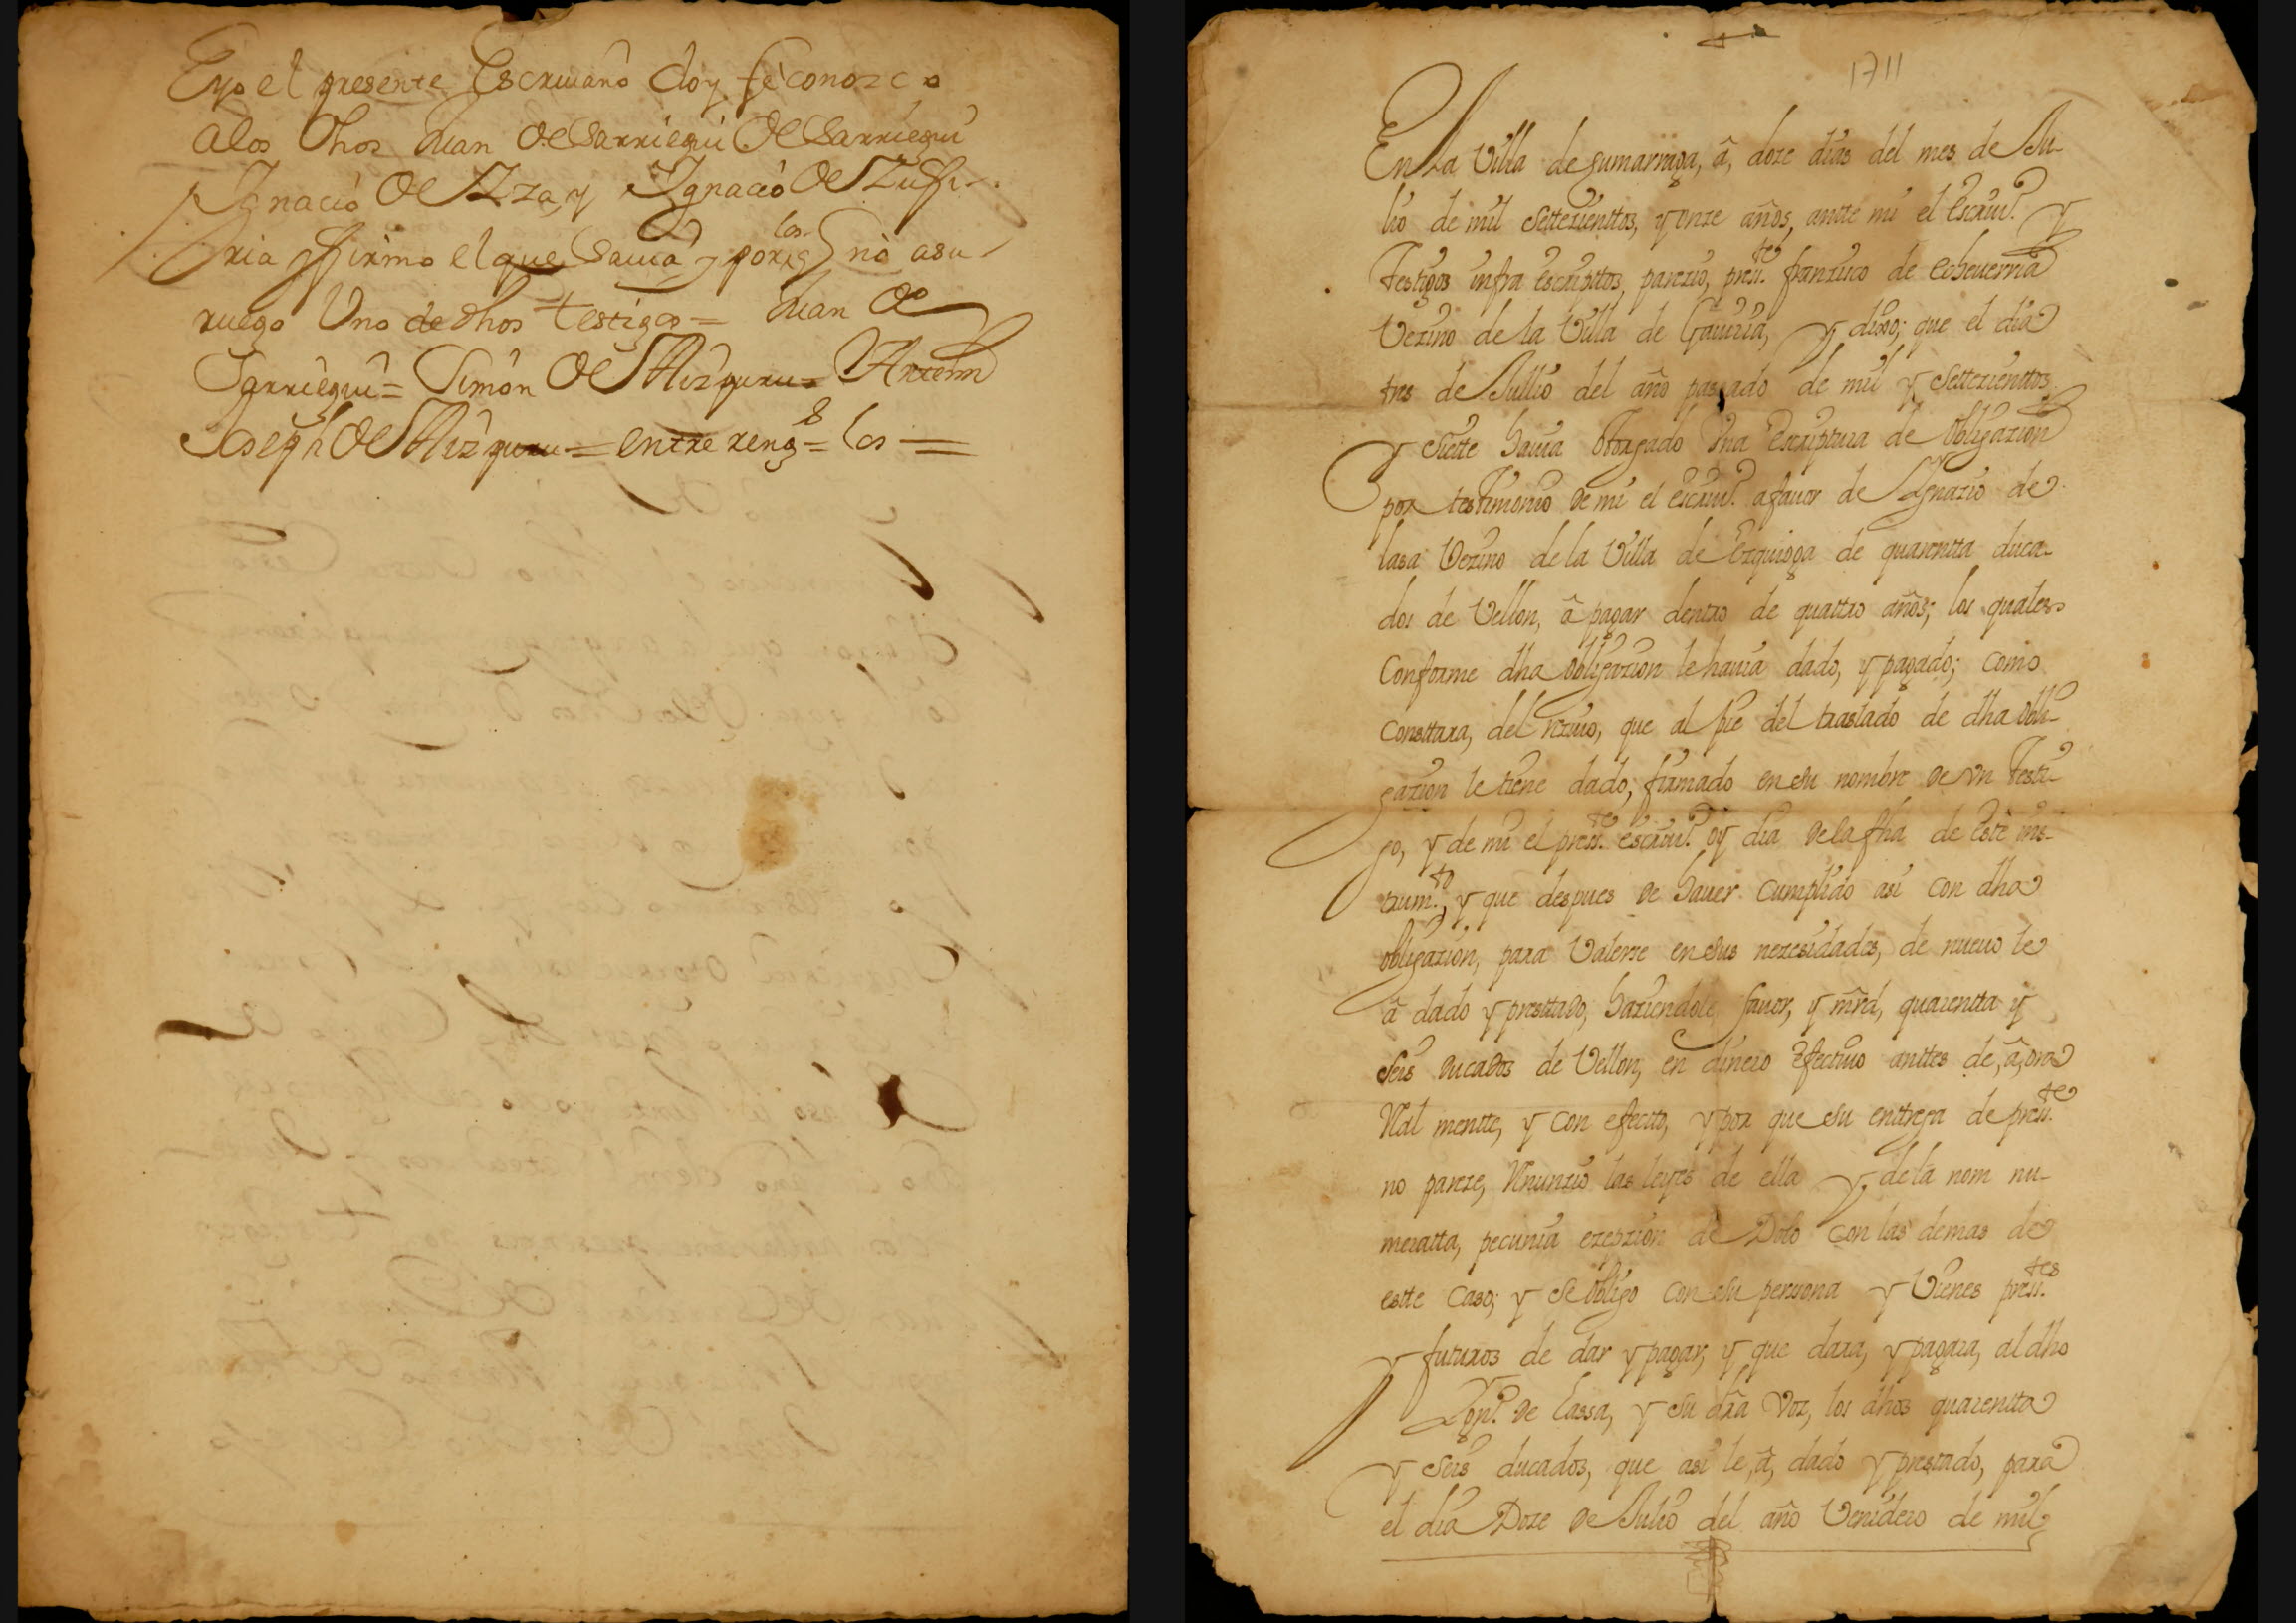 Eyo el presente Escriuano doy fe conozco
alos dhos Juan de Sarriegui de Sarriegui
Ignacio de Izza, y Ignacio de Zuffi-
ria y firmo el que Sauia y por los q no asu
ruego Uno de dhos testigos = Juan de
Sarriegui = Simon de Aizpuru = Antemi
Joseph de Aizpuru = entre reng.s = los =
1711
En la Villa de Zumarraga, â, doze dias del mes de Ju-
lio de mil Settezienttos, y onze años, antte mi el Escriu.o y
Testigos infra escripttos, parezio, press.te franzisco de echeuerria
Vezino de la Villa de Gauiria, y dixo; que el dia
tres de Jullio del año passado de mil y Settezienttos
y Siette hauia ottorgado Una Escriptura de Obligazion
por testtimonio de mi el escriu.o afauor de Ygnazio de
lasa Vezino de la Villa de Ezquioga de quarentta duca-
dos de Vellon, â pagar dentro de quattro años; los quales
Conforme dha obligazion le hauia dado, y pagado; como
Consttara, del reziuo, que al pie del traslado de dha obli-
gazion le tiene dado, firmado en su nombre de vn Testi-
go, y de mi el press.te escriu.o oy dia dela fha de Este ins-
trum.to, y que despues de hauer Cumplido asi con dha
obligazion, para Valerse en sus nezesidades, de nueuo le
â dado y presttado, haziendole fauor, y mrd, quarentta y
Seis ducados de Vellon, en dinero Efectiuo anttes de, â, ora
Real mentte, y con efecto, y por que su enttrega de press.te
no pareze, Renunzio las leyes de ella y de la nom nu-
meratta, pecunia ezepzion de Dolo con las demas de
estte Caso; y se obligo con su persona y Vienes press.tes
y futuros de dar y pagar, y que dara, y pagara, al dho
Ygn.o de Lassa, y su dra Voz, los dhos quarentta
y seis ducados, que asi le, â, dado y prestado, para
el dia Doze de Julio del año Venidero de mil